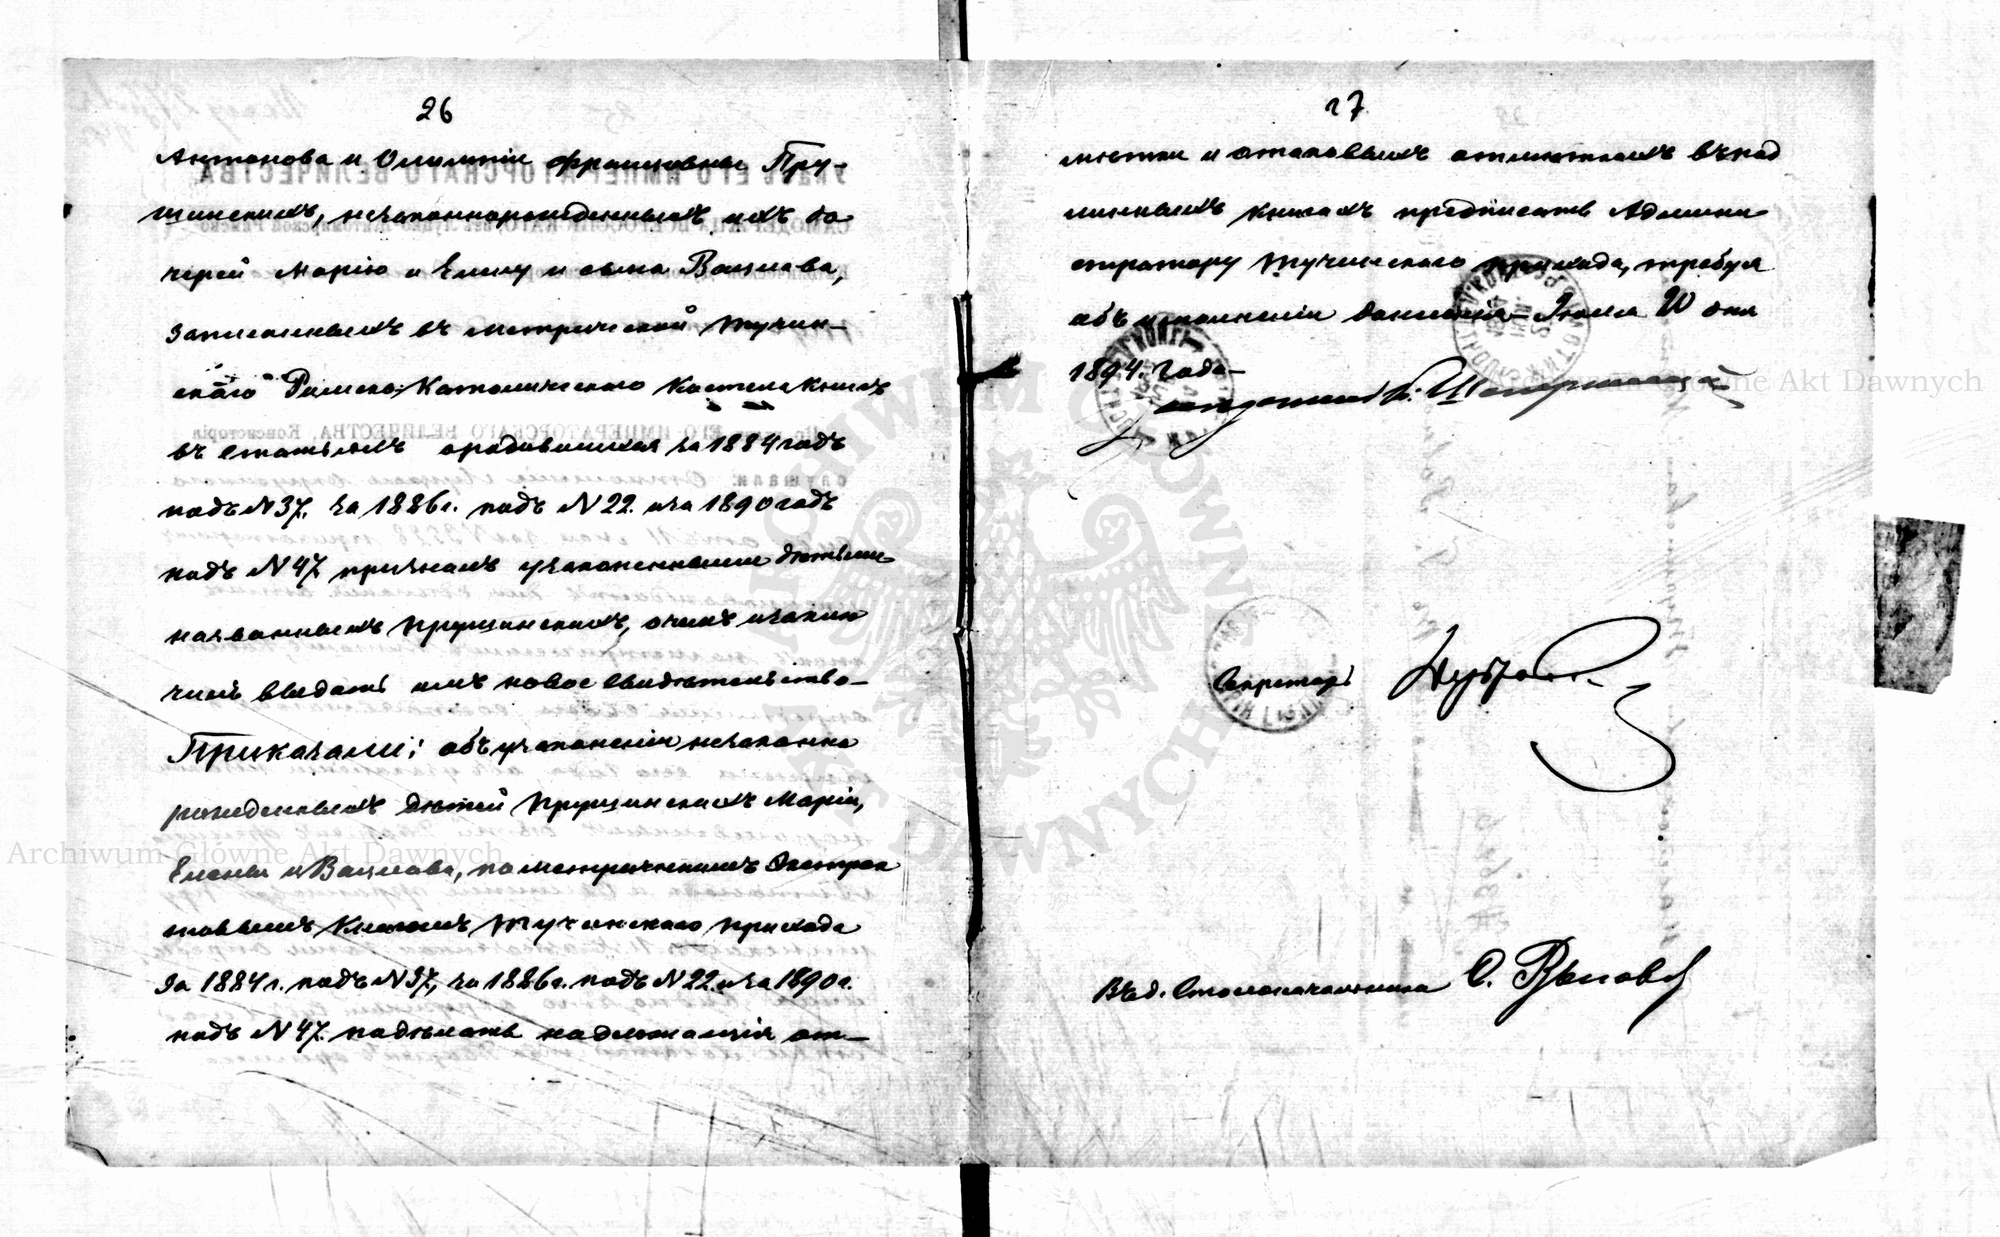 26
Антонова и Олимпіи Францовны Пру-
шинскихъ, незаконнорожденныхъ ихъ до
черей Марію и Елену и сына Вацлава,
записанныхъ въ метрической Тучин-
скаго Римско-Католическаго Костела Книгѣ
въ статьяхъ о родившихся за 1884 годъ
подъ N 37, за 1886 г. подъ N 22 и за 1890 годъ
подъ N 47 признать узаконенными дѣтьми
названныхъ Прушинскихъ, о чемъ и
выдать имъ новое свидѣтельство-
Приказали: объ узаконеніи незаконно
рожденныхъ дѣтей Прушинскихъ Маріи,
Елены и Вацлава, по метрическимъ Экстрак
товымъ Книгамъ Тучинскаго прихода
за 1884 г. подъ N 37, за 1886 г. подъ N 22 и за 1890 г.
подъ N 47 подѣлать надлежащія от-
27
мѣтки и о таковыхъ отмѣткахъ въ под
линныхъ книгахъ предписать Админи
стратору Тучинскаго прихода, требуя
объ исполненіи донесенія- Іюля 20 дня
1894 Года-
Секретарь
Вѣд. Столоначальника
Archiwum Główne Akt Dawnych
Archiwum Główne Akt Dawnych
ARCHIWUM GŁÓWNE AKT DAWNYCH